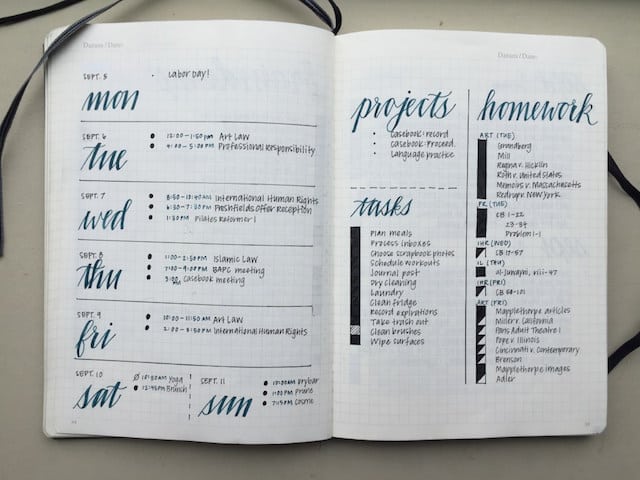 Datum / Date:
SEPT. 5
Labor Day!
mon
SEPT. 6
12:00-1:50 PM Art Law
4:00-5:00 PM Professional Responsibility
tue
SEPT. 7
8:50-10:40 AM International Human Rights
6:30-7:30 PM Freshfields Offer Reception
1:30 PM Pilates Reformer I
wed
SEPT. 8
1:00-2:50 PM Islamic Law
7:00-9:00 PM BAPC meeting
3:00 PM Casebook meeting
thu
SEPT. 9
10:00-11:50 AM Art Law
2:00-3:50 PM International Human Rights
fri
SEPT. 10
10:30 AM Yoga
12:45 PM Brunch
sat
SEPT. 11
10:00 AM Drybar
1:00 PM Prune
7:15 PM Cosme
sun
Datum / Date:
projects
Casebook: record
Casebook: Proceed.
Language practice
tasks
Plan meals
Process inboxes
Choose scrapbook photos
Schedule workouts
Journal post
Dry cleaning
Laundry
Clean fridge
Record expirations
Take trash out
Clean brushes
Wipe surfaces
homework
ART (TUE)
Grandberg
Mill
Regina v. Hicklin
Roth v. United States
Memoirs v. Massachusetts
Redrup v. New York
PR (TUE)
CB 1-22
23-34
Problem 1-1
IHR (WED)
CB 17-57
IL (THU)
al-Junayni, viii-47
IHR (FRI)
CB 58-101
ART (FRI)
Mapplethorpe articles
Miller v. California
Paris Adult Theatre I
Pope v. Illinois
Cincinnati v. Contemporary
Brenson
Mapplethorpe images
Adler